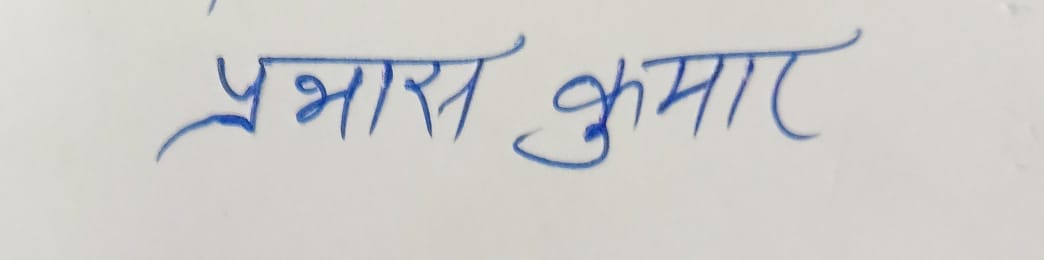 प्रभास कुमार